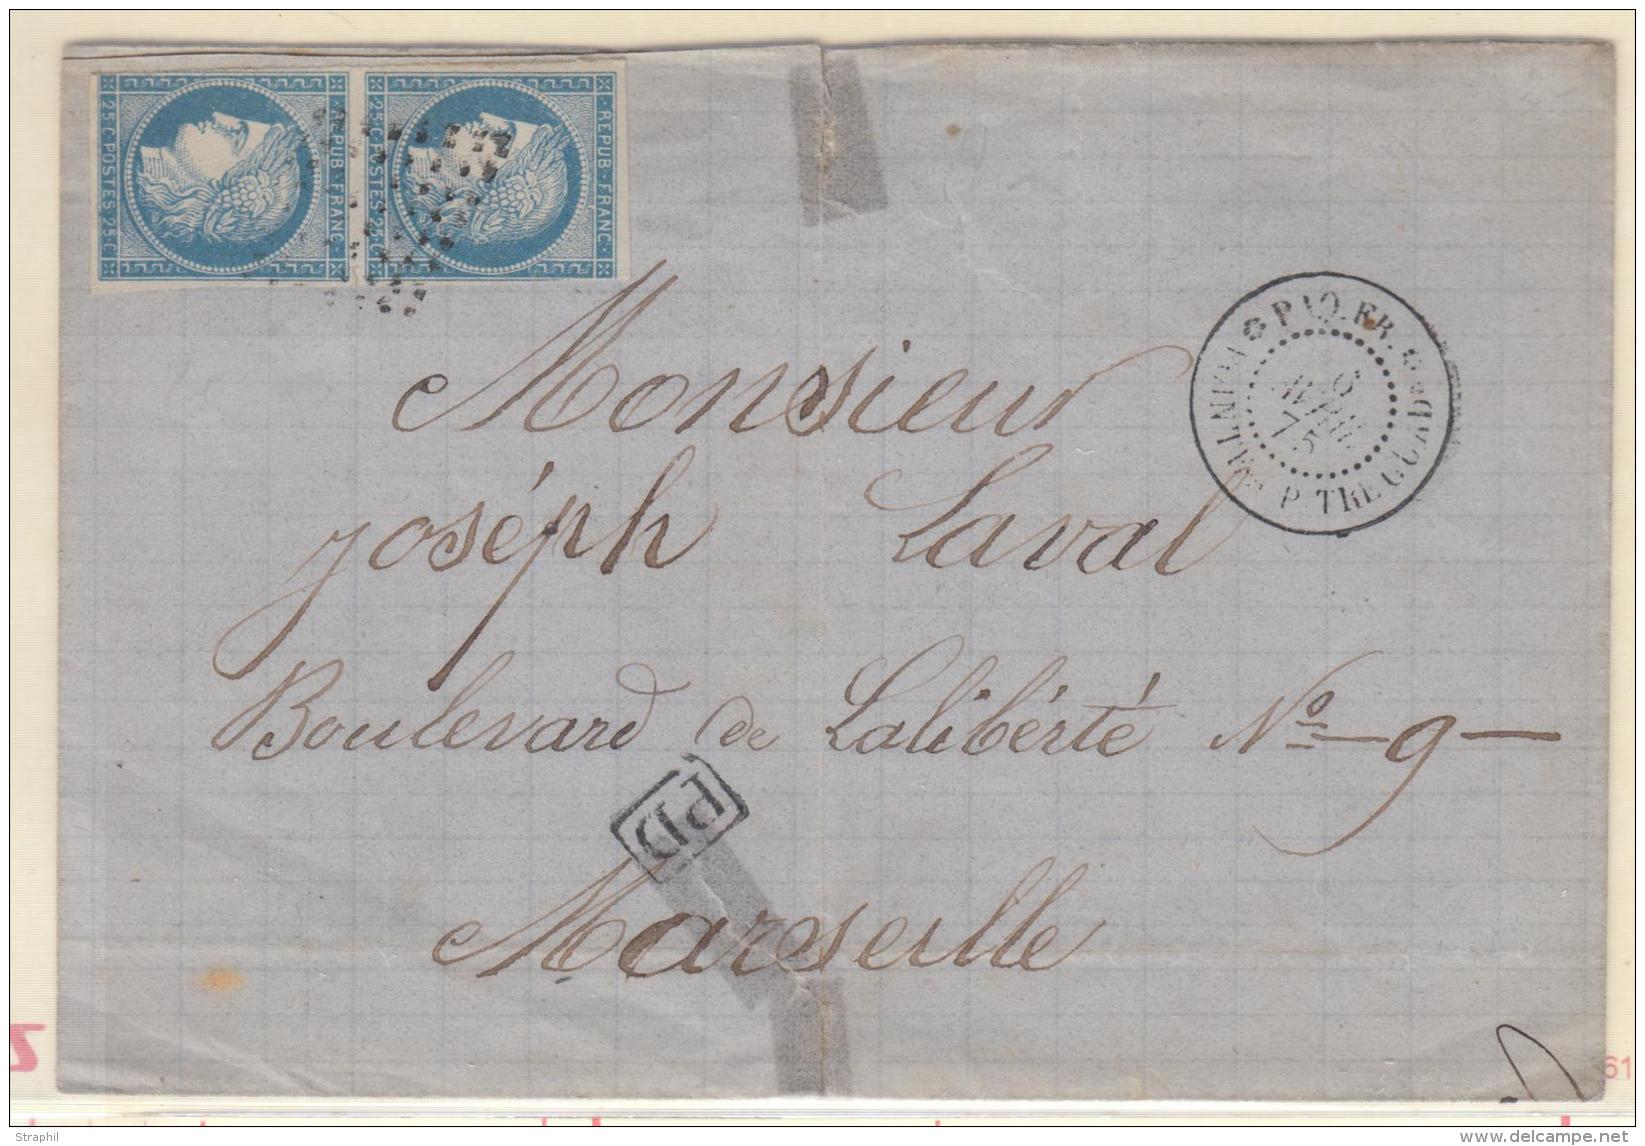 25 C POSTES 25 C
REPUB FRANC
25 C POSTES 25 C
REPUB FRANC
PAQ. FR.
AVRIL
75
Monsieur
Joséph Laval
Boulevard de Laliberté No 9
PD
Marseille
61
Straphil
delcampe.net